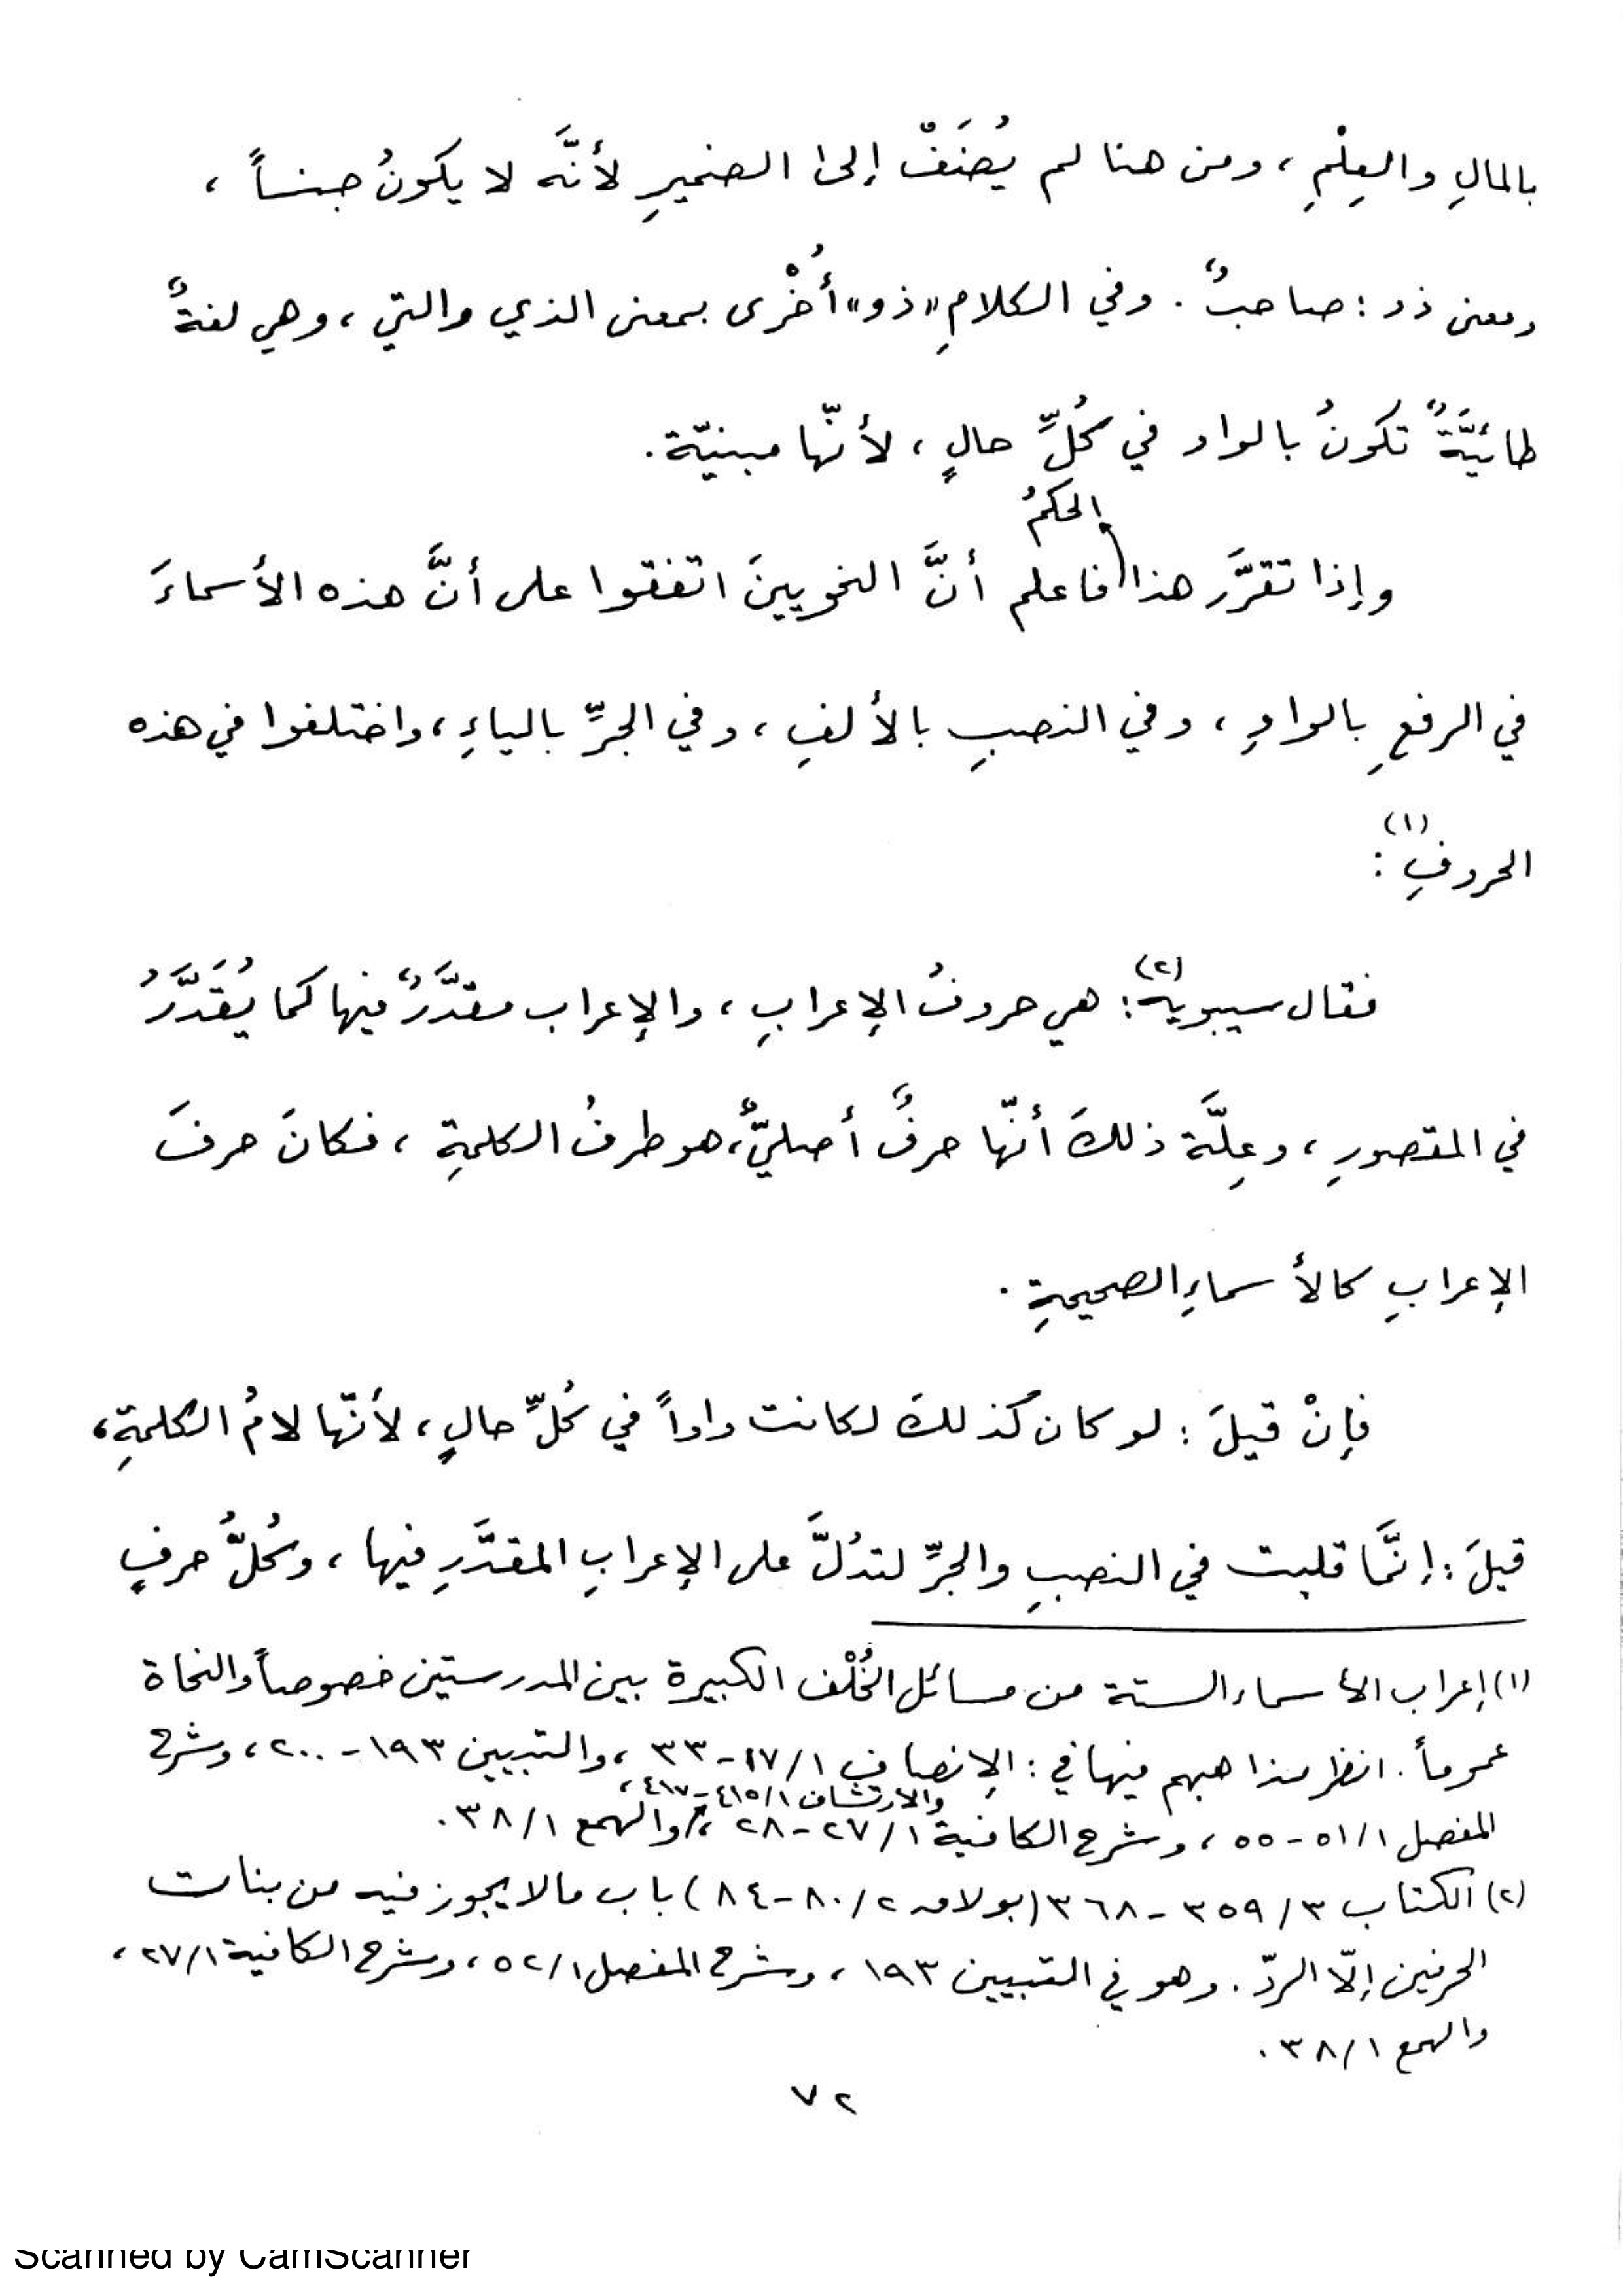 بالمالِ والعِلْمِ ، ومن هنا لم يُضَفْ إلى الضميرِ لأنَّه لا يكونُ جنساً ،
ومعنى ذو : صاحبٌ . وفي الكلامِ "ذو" أُخْرى بمعنى الذي والتي ، وهي لغةٌ
طائيَّةٌ تكونُ بالواو في كُلِّ حالٍ ، لأنّها مبنيّة .
وإذا تقرَّر هذا الحكمُ فاعلم أنَّ النحويينَ اتفقوا على أنَّ هذه الأسماءَ
في الرفعِ بالواوِ ، وفي النصبِ بالألفِ ، وفي الجرِّ بالياءِ ، واختلفوا في هذه
الحروفِ (١) :
فقال سيبويه (٢) : هي حروفُ الإعرابِ ، والإعراب مقدَّرٌ فيها كما يُقَدَّرُ
في المقصورِ ، وعِلَّة ذلكَ أنّها حرفٌ أصليٌّ ، هو طرفُ الكلمةِ ، فكانَ حرفَ
الإعرابِ كالأسماءِ الصحيحةِ .
فإنْ قيلَ : لو كان كذلكَ لكانت واواً في كُلِّ حالٍ ، لأنّها لامُ الكلمةِ ،
قيلَ : إنَّما قلبت في النصبِ والجرِّ لتدُلَّ على الإعرابِ المقدَّرِ فيها ، وكُلُّ حرفٍ
(١) إعراب الأسماء الستة من مسائل الخُلْف الكبيرة بين المدرستين خصوصاً والنحاة
عموماً . انظر مذاهبهم فيها في : الإنصاف ١/١٧-٣٣ ، والتبيين ١٩٣-٢٠٠ ، وشرح
المفصل ١/٥١-٥٥ ، وشرح الكافية ١/٢٧-٢٨ ، والارتشاف ١/٤١٥-٤١٧ ، والهمع ١/٣٨ .
(٢) الكتاب ٣/٣٥٩-٣٦٨ (بولاق ٢/٨٠-٨٤) باب ما لا يجوز فيه من بنات
الحرفين إلّا الردّ . وهو في التبيين ١٩٣ ، وشرح المفصل ١/٥٢ ، وشرح الكافية ١/٢٧ ،
والهمع ١/٣٨ .
٧٢
Scanned by CamScanner